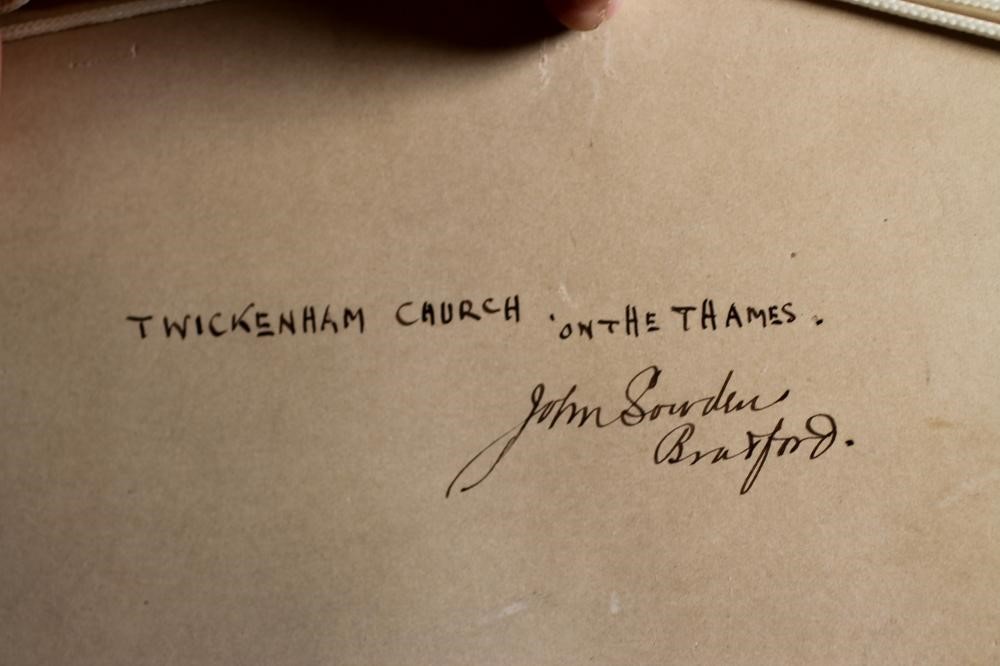 TWICKENHAM CHURCH . ON THE THAMES .
John Sowden
Bradford.